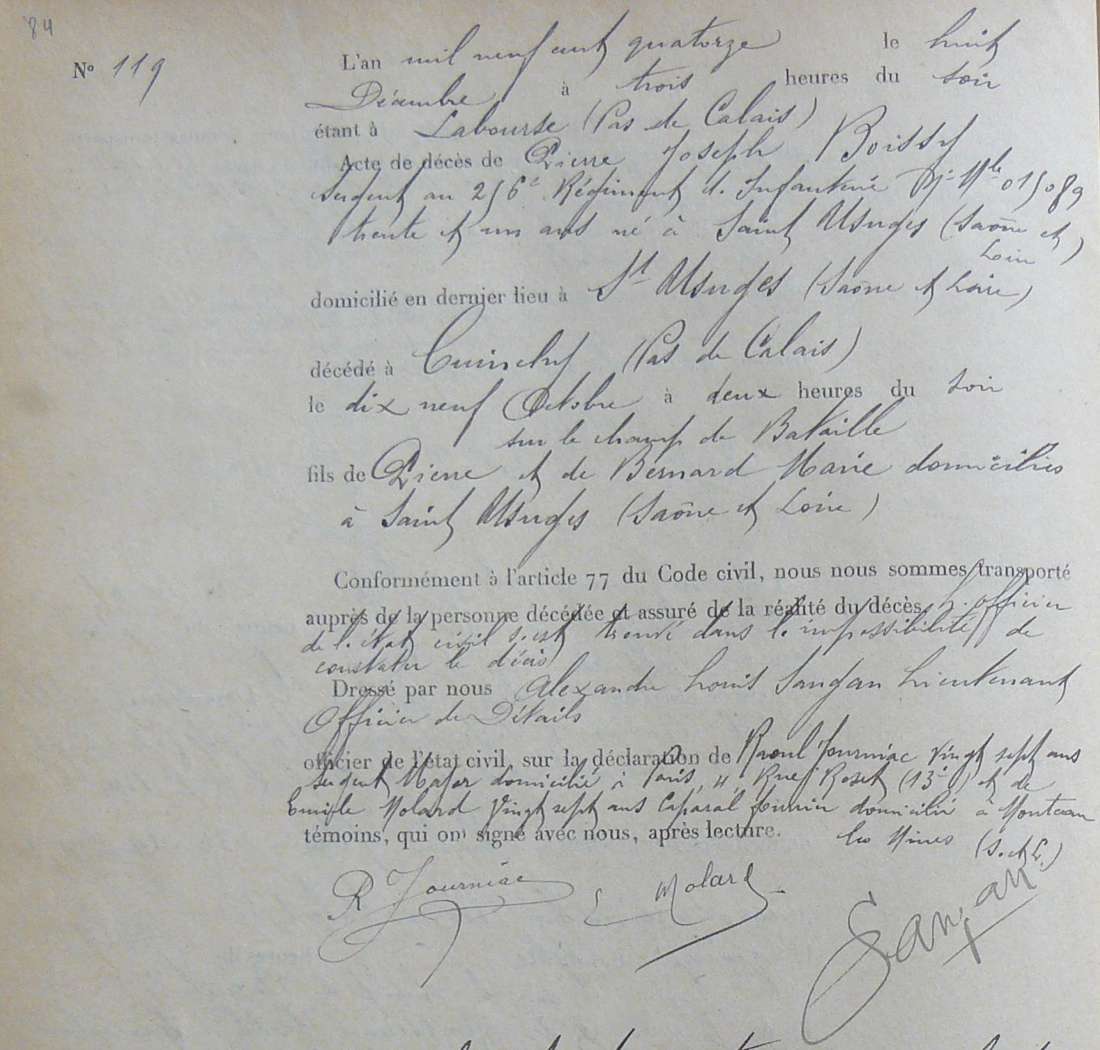 84
N° 119
L'an mil neuf cent quatorze le huit
Décembre à trois heures du soir
étant à Labourse (Pas de Calais)
Acte de décès de Pierre Joseph Boissy
sergent au 256e Régiment d'Infanterie Mle 015089
trente et un ans né à Saint Usuges (Saône et
Loire)
domicilié en dernier lieu à St Usuges (Saône et Loire)
décédé à Cuinchy (Pas de Calais)
le dix neuf Octobre à deux heures du soir
sur le champ de Bataille
fils de Pierre et de Bernard Marie domiciliés
à Saint Usuges (Saône et Loire)
Conformément à l'article 77 du Code civil, nous nous sommes transporté
auprès de la personne décédée et assuré de la réalité du décès. l'officier
de l'état civil s'est trouvé dans l'impossibilité de
constater le décès
Dressé par nous Alexandre Louis Lieutenant
Officier de Détails
officier de l'état civil, sur la déclaration de Raoul Journiac vingt sept ans
sergent Major domicilié à Paris, Rue (13e) et de
Emile Molard vingt sept ans Caporal fourrier domicilié à Montceau
témoins, qui ont signé avec nous, après lecture. les Mines (S. et L.)
R Journiac E Molard